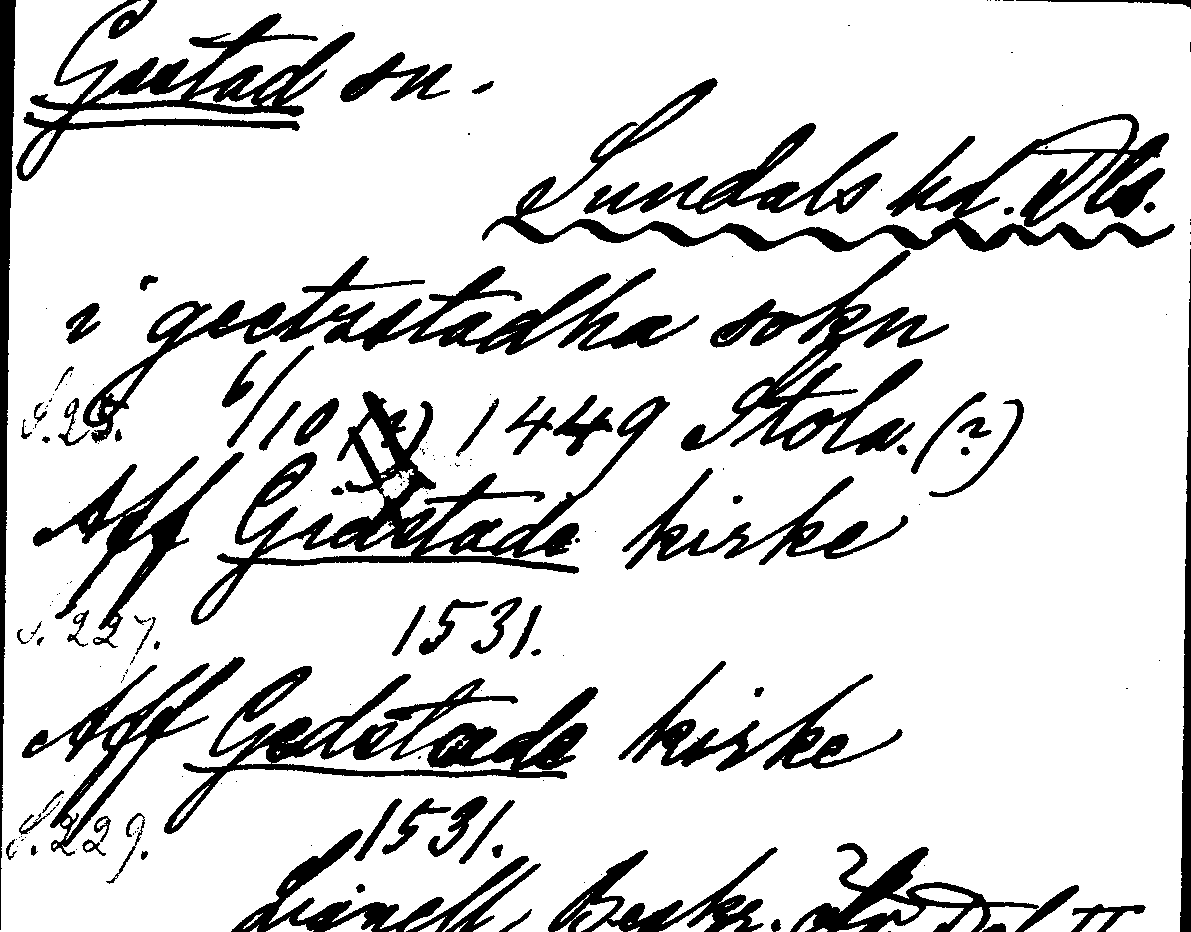 Gestad sn.
Sundals hd. Dls.
i geetzstadha sokn
S.25. 6/10 1449 Stola. (?)
Aff Gidstade kirke
S.227. 1531.
Aff Gedstade kirke
S.229. 1531.
Lignell, Beskr. Dal II